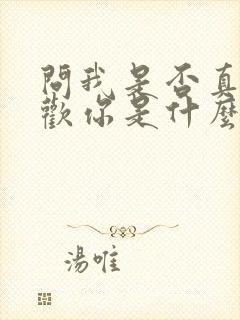 問我是否真
歡你是什麼
湯唯